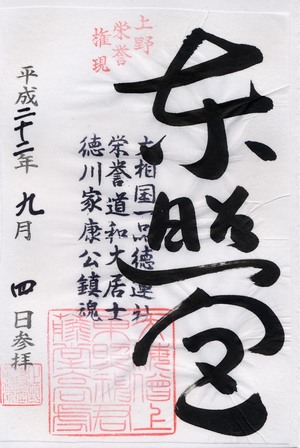 東照宮
大相国一品徳蓮社
栄誉道和大居士
徳川家康公鎮魂
上野
栄誉
権現
平成二十二年 九月 四日参拝